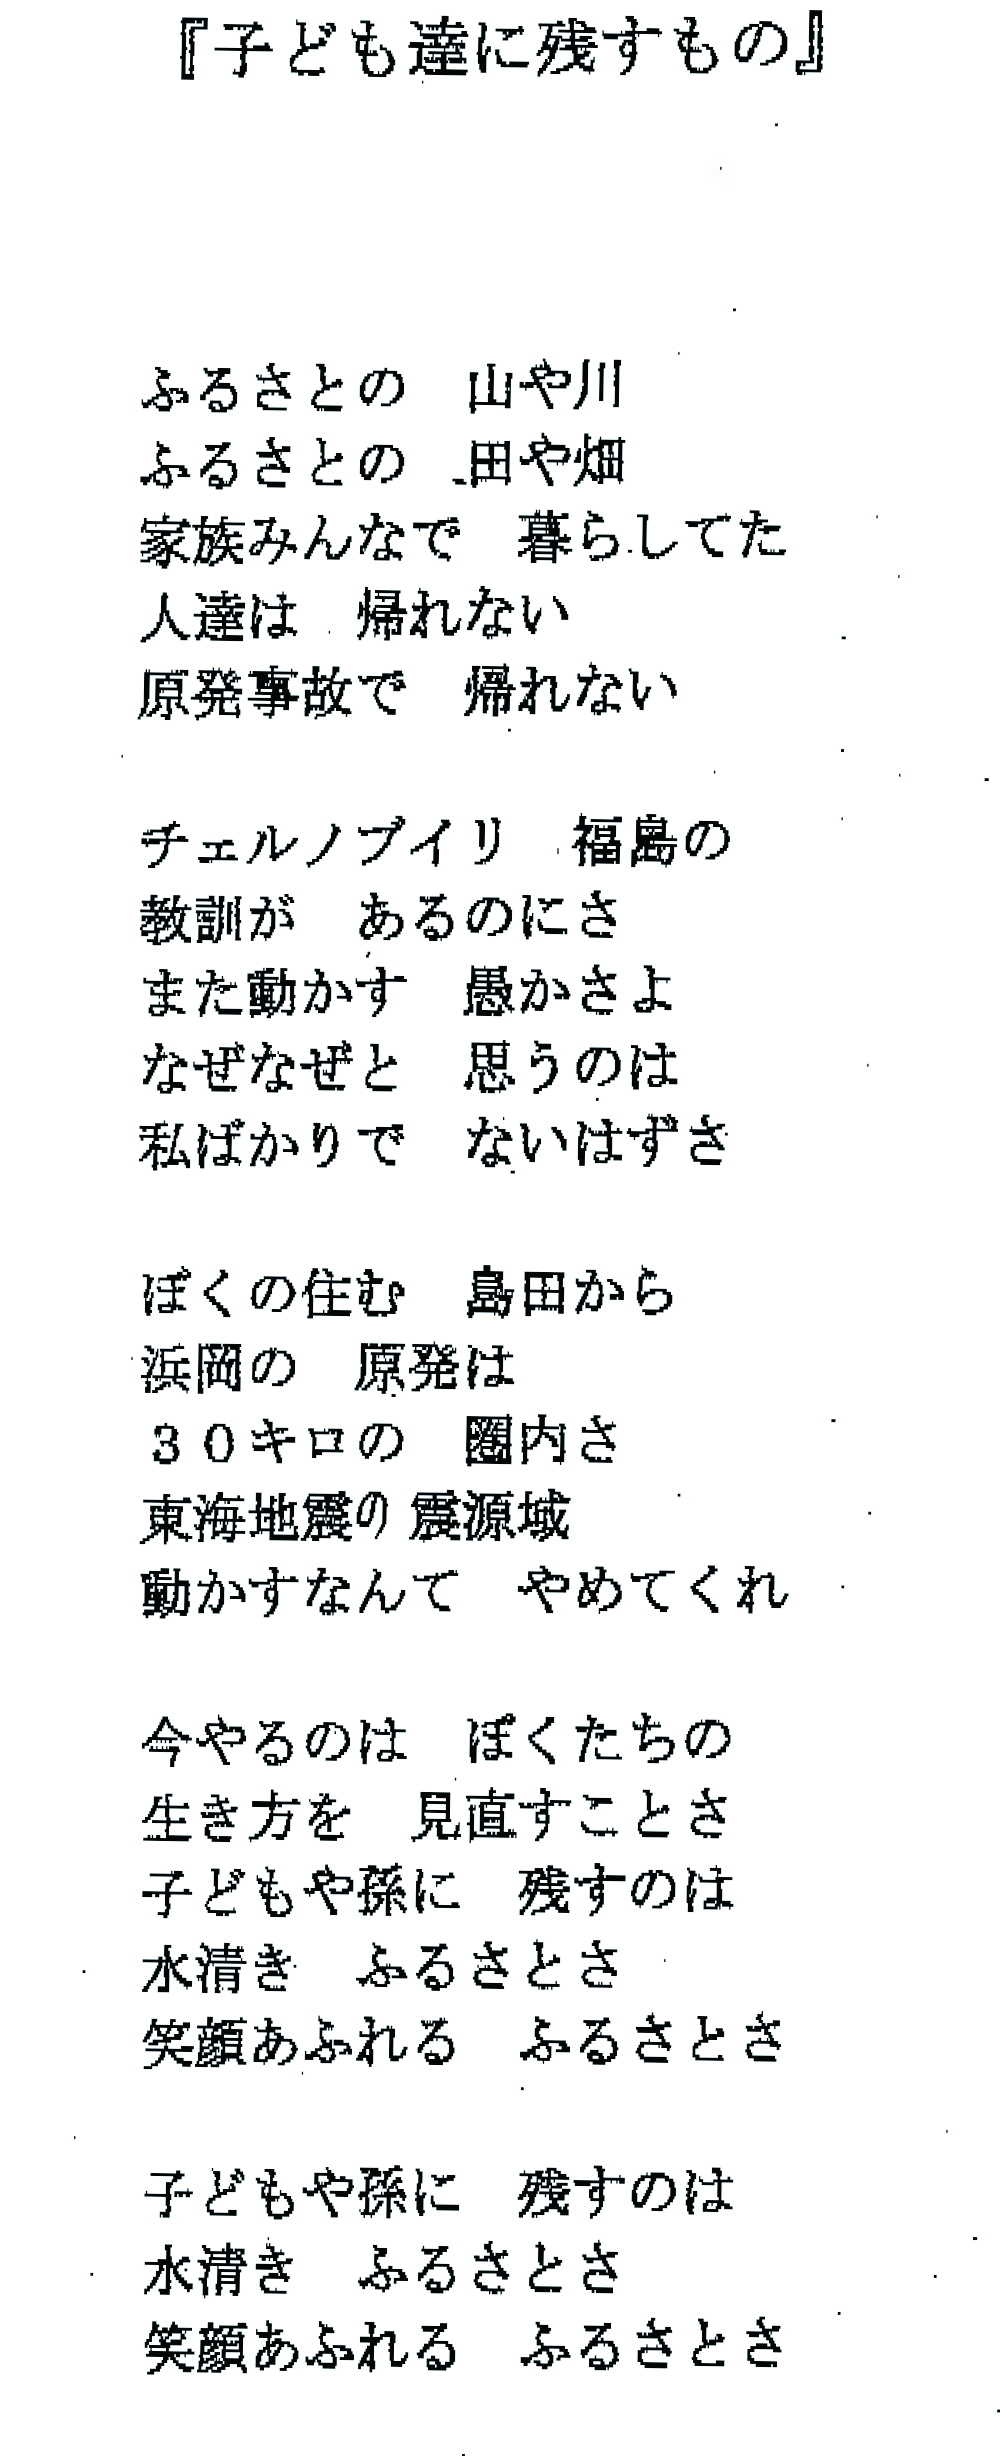 『子ども達に残すもの』
ふるさとの　山や川
ふるさとの　田や畑
家族みんなで　暮らしてた
人達は　帰れない
原発事故で　帰れない
チェルノブイリ　福島の
教訓が　あるのにさ
また動かす　愚かさよ
なぜなぜと　思うのは
私ばかりで　ないはずさ
ぼくの住む　島田から
浜岡の　原発は
３０キロの　圏内さ
東海地震の 震源域
動かすなんて　やめてくれ
今やるのは　ぼくたちの
生き方を　見直すことさ
子どもや孫に　残すのは
水清き　ふるさとさ
笑顔あふれる　ふるさとさ
子どもや孫に　残すのは
水清き　ふるさとさ
笑顔あふれる　ふるさとさ